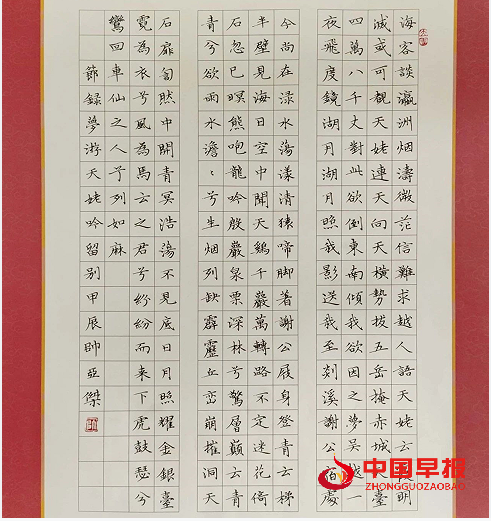 海客談瀛洲烟濤微茫信難求越人語天姥云明
滅或可覩天姥連天向天橫勢拔五岳掩赤城臺
四萬八千丈對此欲倒東南傾我欲因之夢吳越一
夜飛度鏡湖月湖月照我影送我至剡溪謝公宿處
今尚在渌水蕩漾清猿啼脚著謝公屐身登青云梯
半壁見海日空中聞天鷄千巖萬轉路不定迷花倚
石忽已暝熊咆龍吟殷巖泉栗深林兮驚層巔云青
青兮欲雨水澹〻兮生烟列缺霹靂丘巒崩摧洞天
石扉訇然中開青冥浩蕩不見底日月照耀金銀臺
霓為衣兮風為馬云之君兮紛紛而来下虎鼓瑟兮
鸞回車仙之人兮列如麻
節録夢游天姥吟留别甲展帥亞傑
中国早报
ZHONGGUOZAOBAO